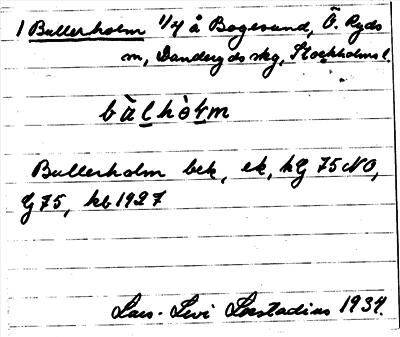 1 Bullerholm 1/4 å Bogesund, Ö. Ryds
sn, Danderyds skg, Stockholms l.
bùlhòlm
Bullerholm bek, ek, hG 75 NO,
G 75, kb 1927
Lars-Levi Læstadius 1934.